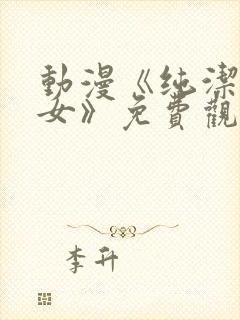 動漫《纯潔
女》免費觀
李升